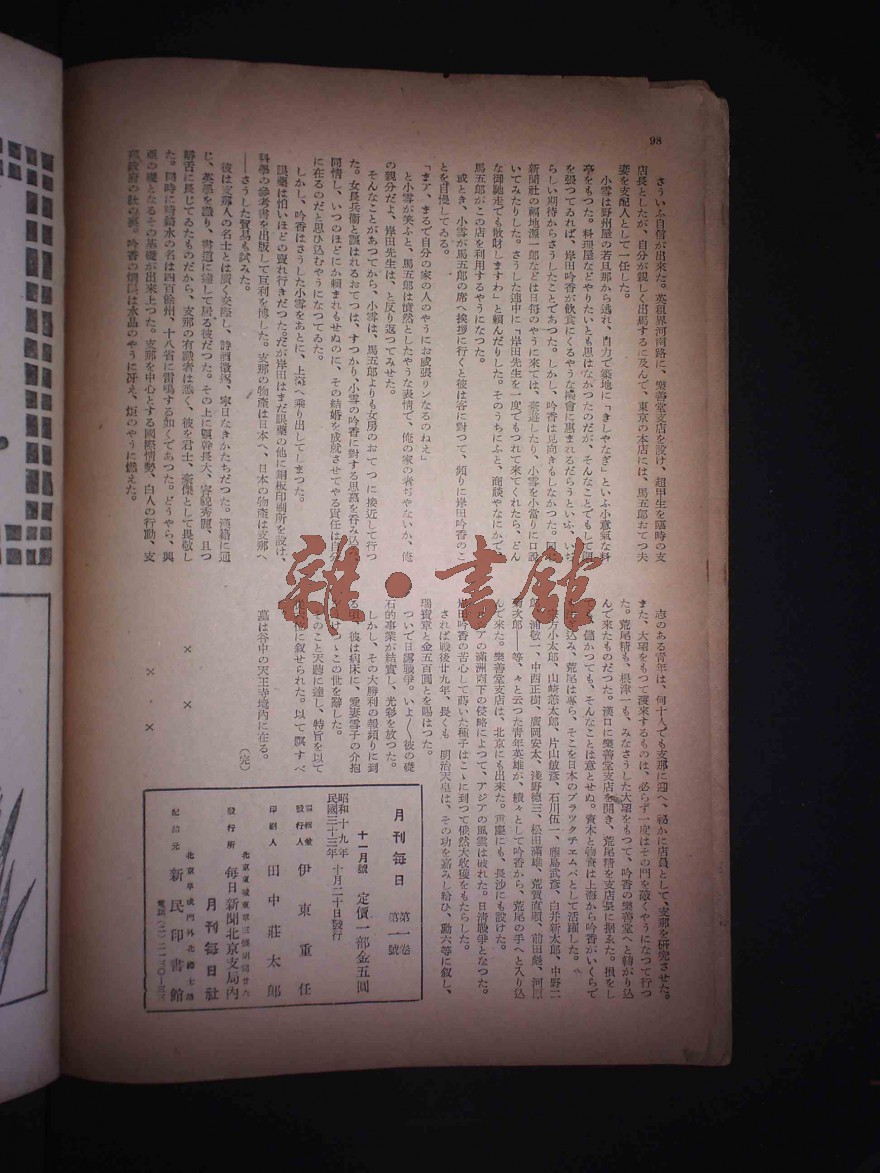 98
さういふ自信が出來た。英租界河南路に、樂善堂支店を設け、趙甲生を臨時の支
店長としたが、自分が親しく出馬するに及んで、東京の本店には、馬五郎おてつ夫
妻を支配人として一任した。
小雪は野州屋の若旦那から逃れ、自力で築地に「きしやなぎ」といふ小意氣な料
亭をもつた。料理屋などやりたいとも思はなかつたのだが、そんなことでもして
を張つてゐれば、岸田吟香が飲食にくるやうな機會に惠まれるだらうといふ、い
らしい期待からさうしたことであつた。しかし、吟香は見向きもしなかつた。
新聞社の福地源一郎などは日毎のやうに來ては、豪遊したり、小雪を小當りに口說
いてみたりした。さうした連中に「岸田先生を一度でもつれて來てくれたら、どん
な御馳走でも散財しますわ」と賴んだりした。そのうちにふと、商談やなにかで
馬五郎がこの店を利用するやうになつた。
或とき、小雪が馬五郎の席へ挨拶に行くと彼は客に對つて、頻りに岸田吟香のこ
とを自慢してゐる。
「まア、まるで自分の家の人のやうにお威張りンなるのねえ」
と小雪が笑ふと、馬五郎は憤然としたやうな表情で、俺の家の者ぢやないか、俺
の親分だよ、岸田先生は、と反り返つてみせた。
そんなことがあつてから、小雪は、馬五郎よりも女房のおてつに接近して行つ
た。女長兵衞と謳はれるおてつは、すつかり、小雪の吟香に對する思慕を呑み込
同情し、いつのほどにか賴まれもせぬのに、その結婚を成就させてやる責任は自分
に在るのだと思ひ込むやうになつてゐた。
しかし、吟香はさうした小雪をあとに、上海へ乘り出してしまつた。
眼藥は怕いほどの賣れ行きだつた。だが岸田はまだ眼藥の他に銅板印刷所を設け、
科學の參考書を出版して巨利を博した。支那の物產は日本へ、日本の物產は支那へ
――さうした貿易も試みた。
彼は支那人の名士とは廣く交際し、詩酒徵逐、寧日なきかたちだつた。漢籍に通
じ、英學を識り、書道に達して居る彼だつた。その上に軀幹長大、容貌秀麗、且つ
辯舌に長じてゐたものだから、支那の有識者は悉く、彼を君士、豪傑として畏敬し
た。同時に精錡水の名は四百餘州、十八省に雷鳴する如くであつた。どうやら、興
亞の礎となるその基礎が出來上つた。支那を中心とする國際情勢、白人の行動、支
那政府の肚の裏。吟香の頭腦は水晶のやうに冴え、炬のやうに燃えた。
志のある靑年は、何十人でも支那に迎へ、祕かに店員として、支那を硏究させた。
また、大望をもつて渡來するものは、必らず一度はその門を敲くやうになつて行つ
た。荒尾精も、根津一も、みなさうした大望をもつて、吟香の樂善堂へと轉がり込
んで來たものだつた。漢口に樂善堂支店を開き、荒尾精を支店長に据ゑた。損をし
儲かつても、そんなことは意とせぬ。資本と物資は上海から吟香がいくらで
込み、荒尾は專ら、そこを日本のブラックチェムバとして活躍した。
方小太郎、山崎恙太郎、片山敏彥、石川伍一、藤島武彥、白井新太郎、中野二
浦敬一、中西正樹、廣岡安太、淺野德三、松田滿雄、荒賀直順、前田彪、河原
次郎――等、々と云つた靑年英雄が、續々として吟香から、荒尾の手へと入り込
んで來た。樂善堂支店は、北京にも出來た。重慶にも、長沙にも設けた。
シアの滿洲南下の侵略によつて、アジアの風雲は破れた。日淸戰爭となつた。
岸田吟香の苦心して蒔いた種子はこゝに到つて俄然大收穫をもたらした。
されば戰後廿九年、長くも　明治天皇は、その功を嘉みし給ひ、勳六等に叙し、
瑞寶章と金五百圓とを賜はつた。
ついで日露戰爭。いよ〳〵彼の礎
石的事業が結實し、光彩を放つた。
しかし、その大勝利の報頻りに到
る頃、彼は病床に、愛妻雪子の介抱
けつゝこの世を辭した。
そのこと天聽に達し、特旨を以て
位に叙せられた。以て瞑すべ
墓は谷中の天王寺境內に在る。
（完）
×　×
×　×
月刊每日　第一卷　第一號
十一月號　定價一部金五圓
昭和十九年
民國三十三年　十月二十日發行
發行人　伊東重任
印刷人　田中莊太郎
發行所　每日新聞北京支局內
月刊每日社
北京阜成門外北禮士路
配給元　新民印書館
雜・書館